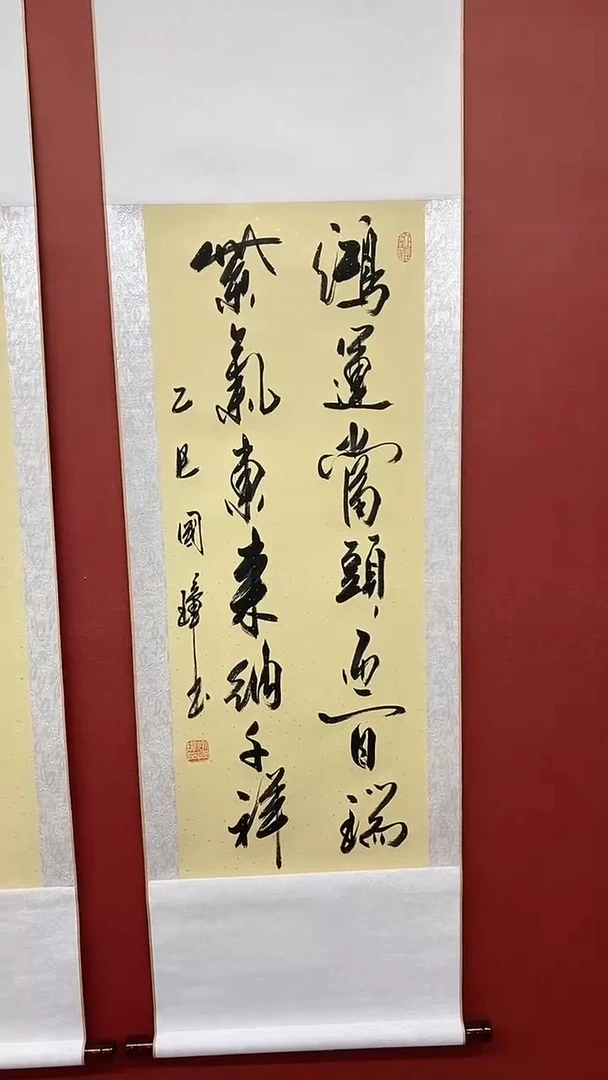 鴻運當頭迎百瑞
紫氣東來納千祥
乙巳國璋书